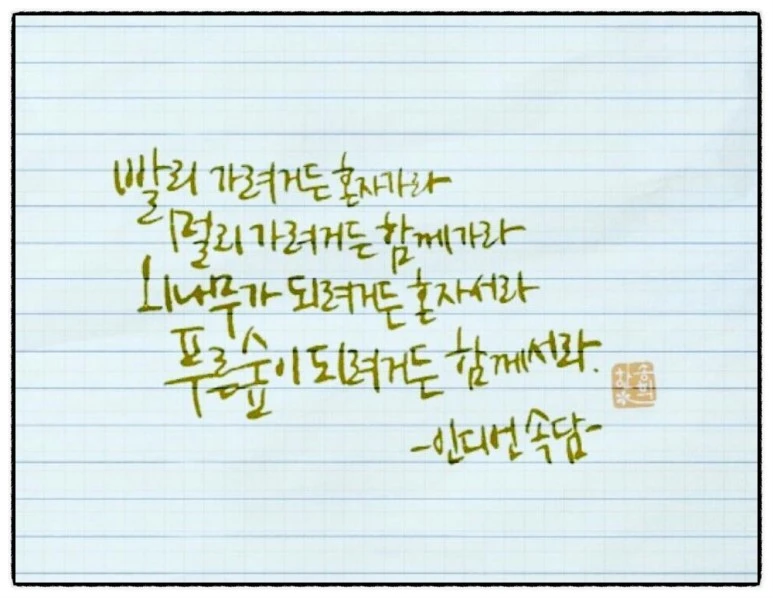 빨리 가려거든 혼자가라
멀리 가려거든 함께가라
외나무가 되려거든 혼자서라
푸른숲이 되려거든 함께서라.
-인디언 속담-